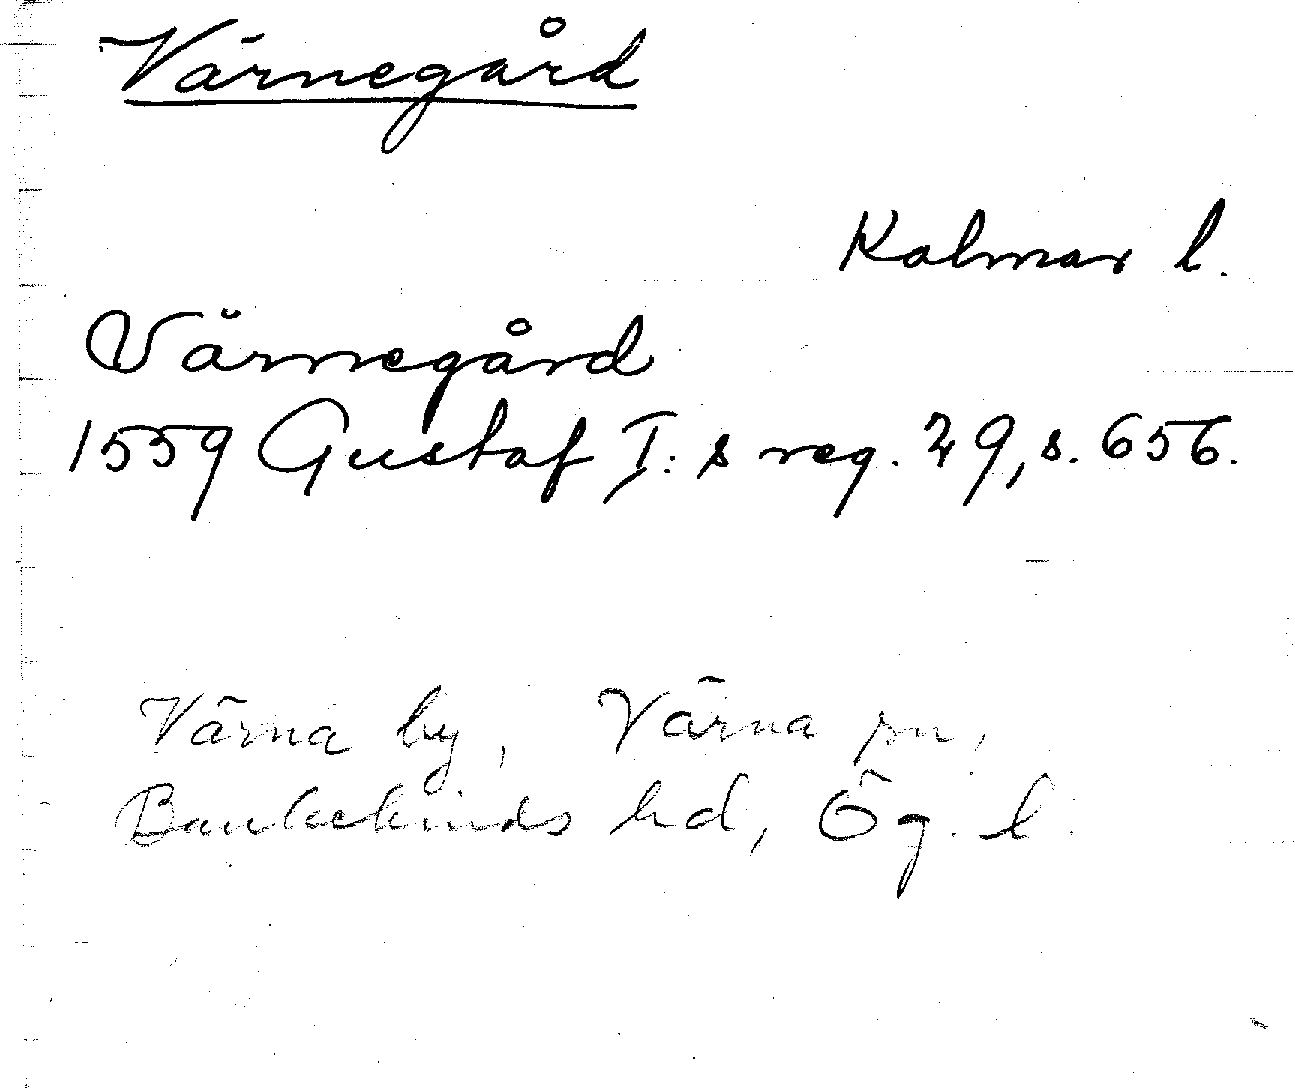 Värnegård
Kalmar l.
Värnegård
1559 Gustaf I:s reg. 29, s. 656.
Värna by, Värna sn,
Bankekinds hd, Ög. l.